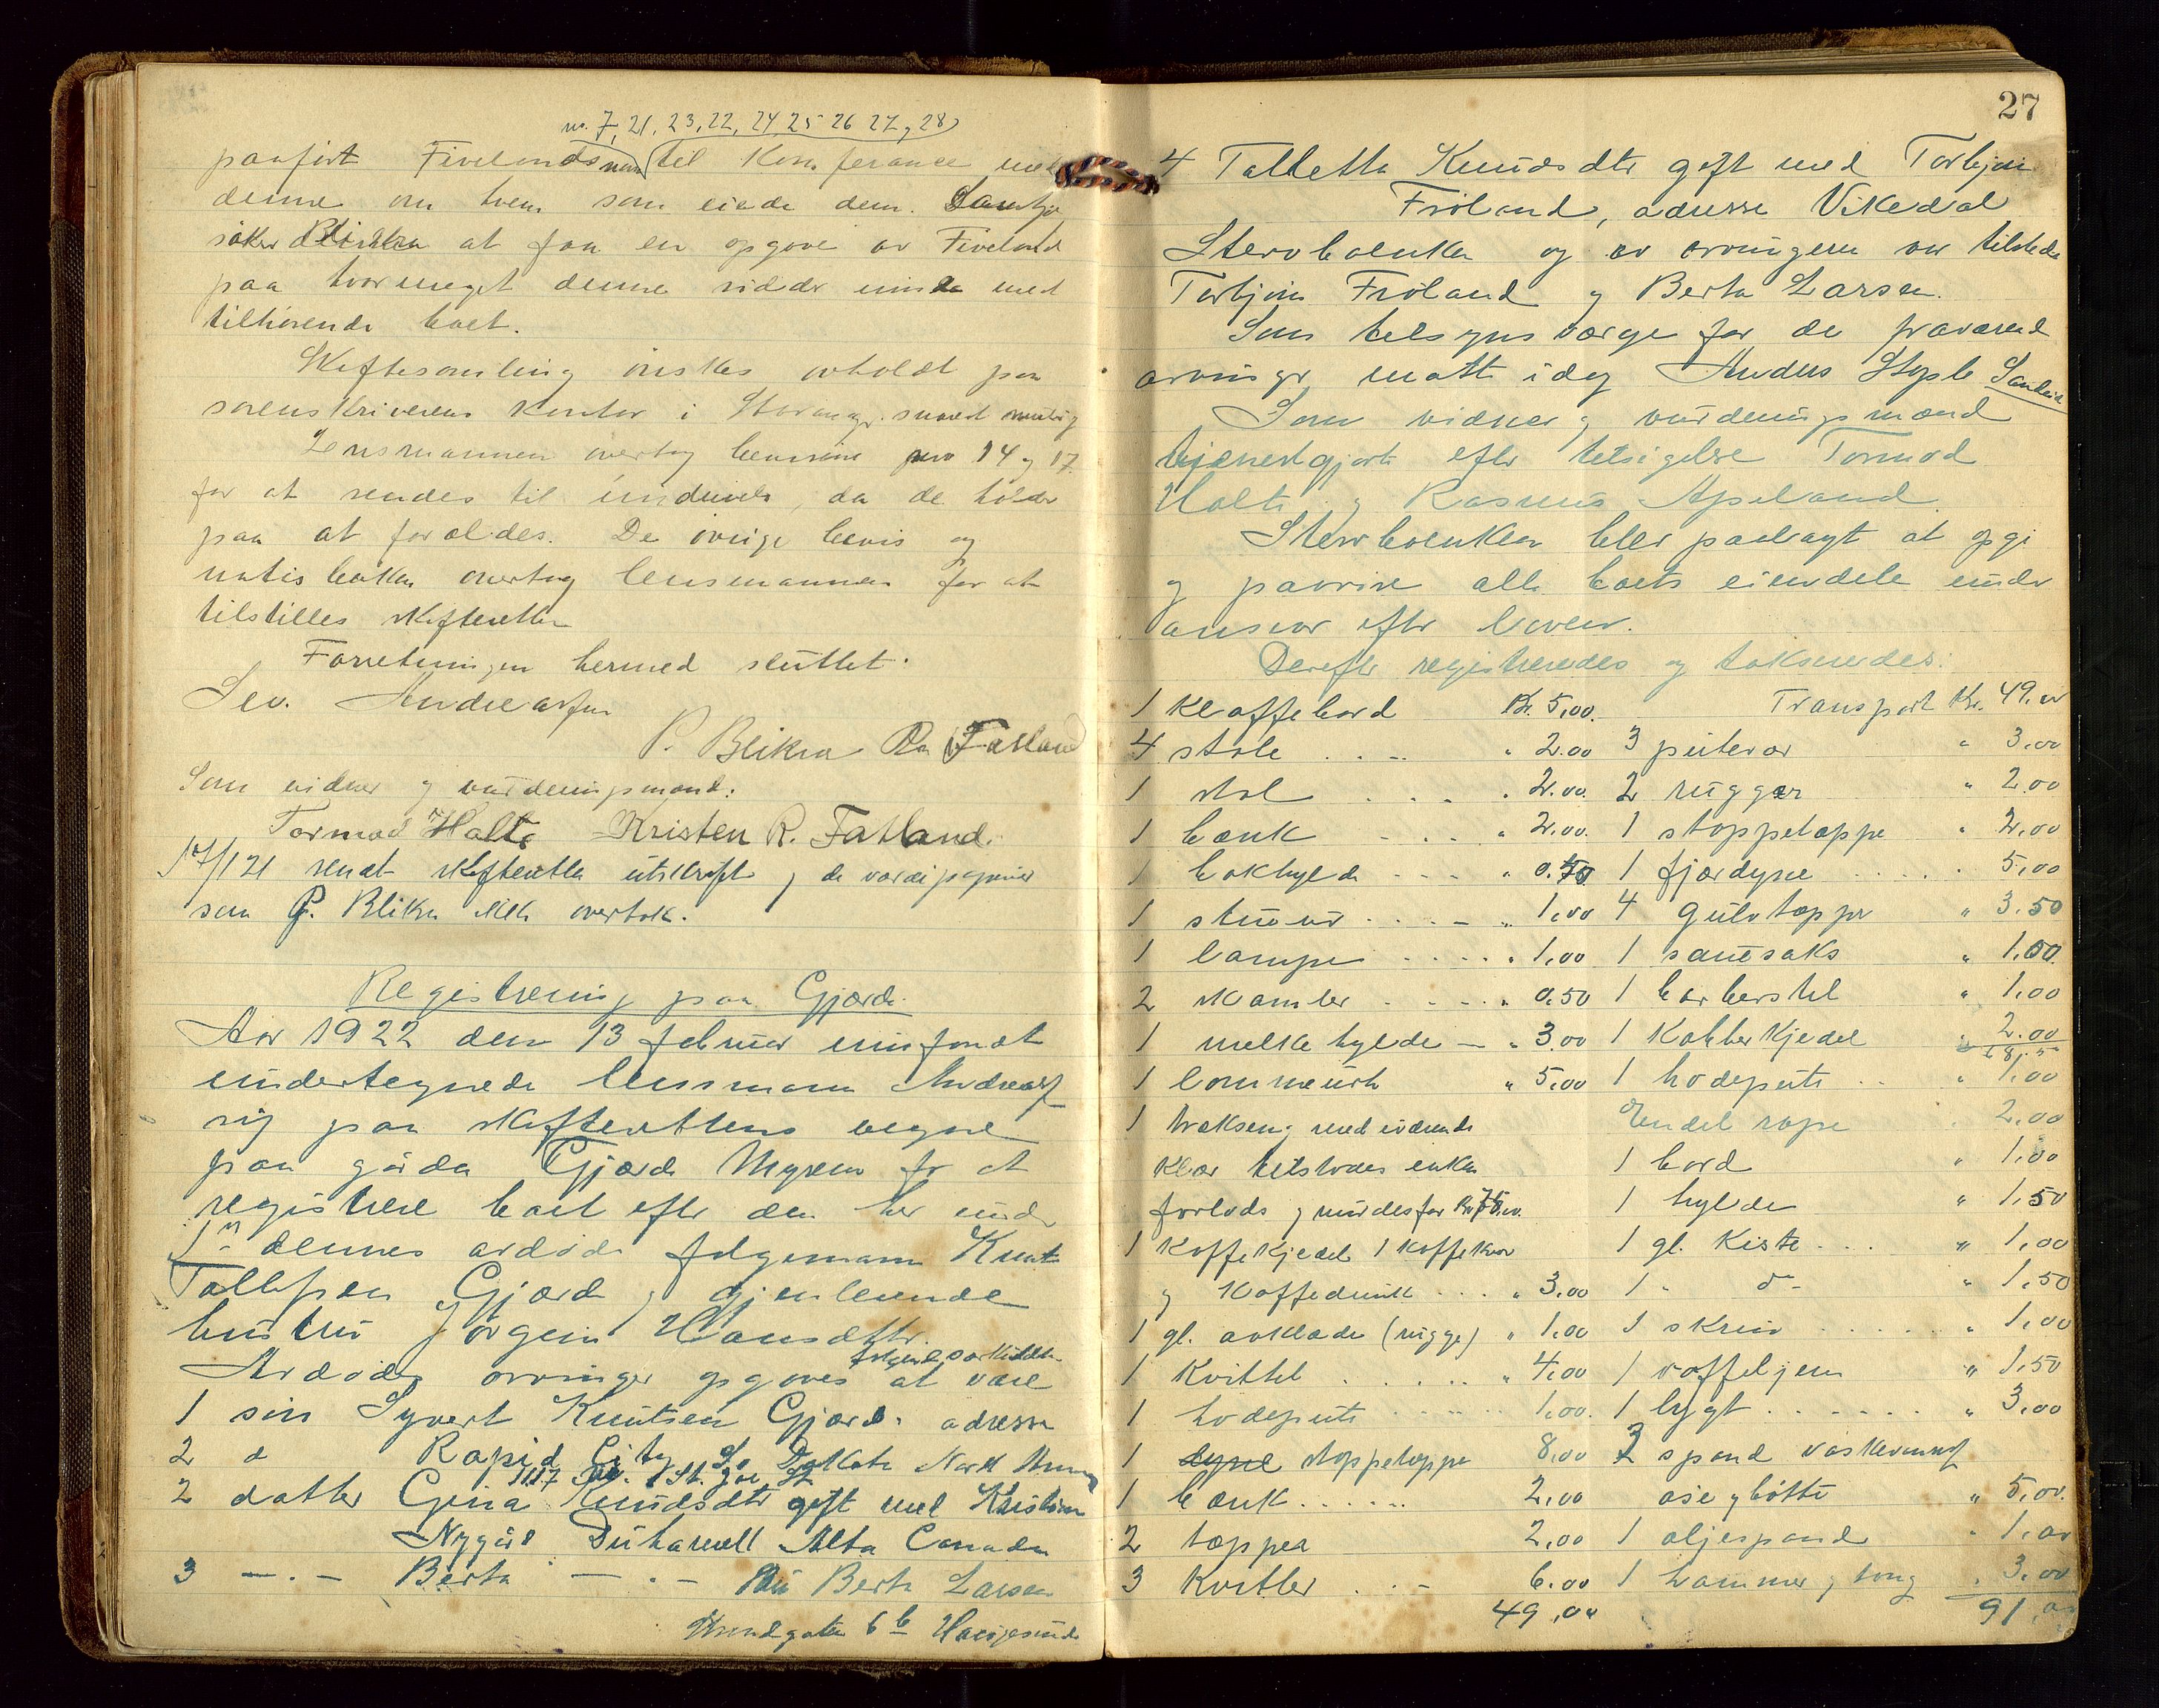 no. 7, 21, 23, 22, 24 25 26 27, 28
paaført Fivelands navn til konferance med
denne om hvem som eiede dem. Samtyk
søker Blikra at faa en opgave av Fiveland
paa hvormeget denne sidder inde med
tilhørende boet.
Skiftesamling ønskes avholdt paa
sorenskriverens kontor i Stavanger snarest mulig
Lensmannen overtog bevisene nr 14 og 17.
for at sendes til inddrivels, da de holder
paa at foræles. De øvrige bevis og
notisboken overtog lensmannen for at
tilstilles skifteretten
Forretningen hermed sluttet.
Sev. Andreassen
P. Blikra Fatland
Som vidner og vurderingsmænd:
Tormod Holta Kristen R. Fatland.
17/1 21 sendt skifteretten utskrift og de værdipapirer
som P. Blikra ikke overtok.
Registrering paa Gjærde.
Aar 1922 den 13 februar innfandt
undertegnede lensmann Andreass
sig paa skifterettens vegne
paa gården Gjærde Myren for at
registrere boet efter den her under
1ste dennes avdøde følgemann Knut
Tollefsen Gjærde og gjenlevende
hustru Jørgine Hansdtr.
Avdødes arvinger opgaves at være
1 søn Syvert Knutsen Gjærde adresse
2 d Rapid City So Dakota Nord Amerika
1117 St. Joe St
2 datter Gina Knudsdtr gift med Kristian
Nygård Duhamell Alta Canada
3 — . — Berta — . — Berta Larsen
Strandgaten 6 b Haugesund
27
4 Talletta Knudsdtr gift med Torbjørn
Frøland, adresse Vikedal
Stervboenken og av arvingene var tilstede
Torbjørn Frøland og Berta Larsen.
Som tilsynsværge for de fraværende
arvinger møtte idag Anders Stople Sandeid
Som vidner og vurderingsmænd
tjenestgjorte efter tilsigelse Tormod
Holta og Rasmus Apeland.
Stervboenken blev paalagt at opgi
og paavise alle boets eiendele under
ansvar efter loven.
Derefter registreredes og takseredes:
1 klaffebord Kr. 5,00. Transport Kr. 49.00
4 stole . . . " 2.00 3 putevar " 3.00
1 skol . . . . " 2.00. 2 rugger " 2.00
1 bænk . . . " 2.00. 1 stoppetæppe " 2,00
1 bokhylde - - - " 0.70 1 fjærdyne . . . . . 5,00
1 stueur . . . . - " 1,00 4 gulvtæpper " 3.50
1 lampe . . . . " 1,00 1 sauesaks " 1.00.
2 skamler . . . . " 0,50 1 barberstel " 1,00
1 melkehylde — " 3.00 1 kobberkjedel " 2.00
1 lommeurh " 5,00 1 hodepute . . " 1.00
1 trækseng med iværende Endel rope 2.00
klær tilstodes enken 1 bord " 1.00
forlods og vurdes for Kr 75.00. 1 hylde " 1.50
1 kaffekjedel 1 kaffekvern 1 gl. kiste . . . " 1,00
og kaffedunk . . . " 3,00 1 " do - " 1.50
1 gl. avklæde (rugge) " 1.00 1 skrin . . . . . . " 1,00
1 kvittel . . . . . " 4,00 1 vaffeljern " 1.50
1 hodepute 1,00. 1 lygt . . . . . . . " 3,00
1 dyne stoppetæppe 8,00 2 spand vaskevannsf
1 bænk . . . . . . 2,00 øse og bøtte " 5,00.
2 tæpper 2,00 1 oljespand " 1.00
3 kvitler . . . - 6.00 1 hammer og tong " 3.00
49,00 91.00